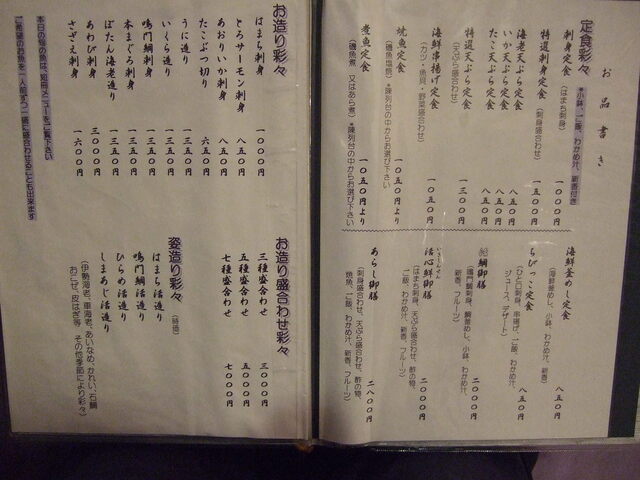 お品書き
定食彩々
*小鉢、ご飯、わかめ汁、新香付き
刺身定食
(はまち刺身)
一〇〇〇円
特選刺身定食
(刺身盛合わせ)
一五〇〇円
海老天ぷら定食
八五〇円
いか天ぷら定食
八五〇円
たこ天ぷら定食
八五〇円
特選天ぷら定食
(天ぷら盛合わせ)
一三〇〇円
海鮮串揚げ定食
(カツ・魚貝・野菜盛合わせ)
一〇五〇円
焼魚定食
(磯魚塩焼)*陳列台の中からお選び下さい
一〇五〇円より
煮魚定食
(磯魚煮 又はあら煮)*陳列台の中からお選び下さい
一〇五〇円より
海鮮釜めし定食
(海鮮釜めし、小鉢、わかめ汁、新香)
八五〇円
ちびっこ定食
(ひと口刺身、串揚げ、ご飯、わかめ汁、
ジュース、デザート)
八五〇円
鯛御膳
(鳴門鯛刺身、鯛釜めし、小鉢、わかめ汁、
新香、フルーツ)
二〇〇〇円
活心鮮御膳
(はまち刺身、天ぷら盛合わせ、酢の物、
ご飯、わかめ汁、新香、フルーツ)
二〇〇〇円
あらし御膳
(刺身盛合わせ、天ぷら盛合わせ、酢の物、
焼魚、ご飯、わかめ汁、新香、フルーツ)
二八〇〇円
お造り彩々
はまち刺身
一〇〇〇円
とろサーモン刺身
八五〇円
あおりいか刺身
八五〇円
たこぶつ切り
六五〇円
うに造り
一三五〇円
いくら造り
一三五〇円
鳴門鯛刺身
一三五〇円
本まぐろ刺身
一三五〇円
ぼたん海老造り
一三五〇円
あわび刺身
三〇〇〇円
さざえ刺身
一六〇〇円
本日の旬の魚は、短冊メニューをご覧下さい
ご希望のお魚を一人前ずつ一緒に盛合わせることも出来ます
お造り盛合わせ彩々
三種盛合わせ
三〇〇〇円
五種盛合わせ
五〇〇〇円
七種盛合わせ
七〇〇〇円
姿造り彩々
(時価)
はまち活造り
鳴門鯛活造り
ひらめ活造り
しまあじ活造り
(伊勢海老、車海老、あいなめ、かれい、石鯛
おこぜ、皮はぎ等 その他季節により彩々)